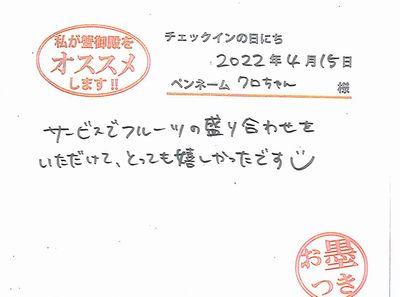 私が蟹御殿を
オススメ
します!!
チェックインの日にち
2022年4月15日
ペンネーム クロちゃん 様
サービスでフルーツの盛り合わせを
いただけて、とっても嬉しかったです
お墨
つき